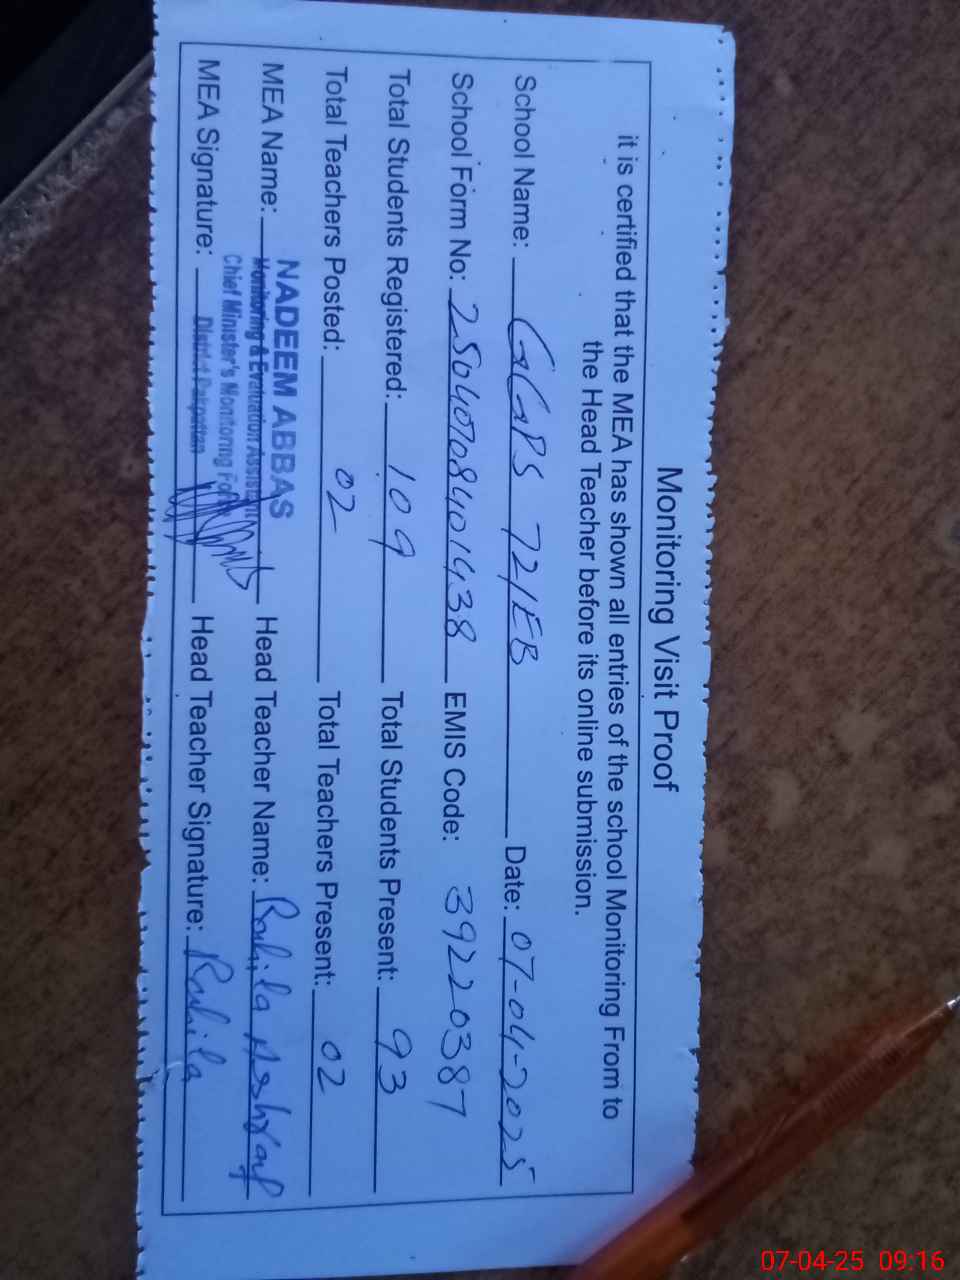 Monitoring Visit Proof
it is certified that the MEA has shown all entries of the school Monitoring From to
the Head Teacher before its online submission.
School Name: GGPS 72/EB Date: 07-04-2025
School Form No: 250407084014 38 EMIS Code: 39220387
Total Students Registered: 109 Total Students Present: 93
Total Teachers Posted: 02 Total Teachers Present: 02
MEA Name: NADEEM ABBAS Head Teacher Name: Rahila Ashraf
Monitoring & Evaluation Assistant
Chief Minister's Monitoring Force
District Pakpattan
MEA Signature: Head Teacher Signature: Rahila
07-04-25 09:16